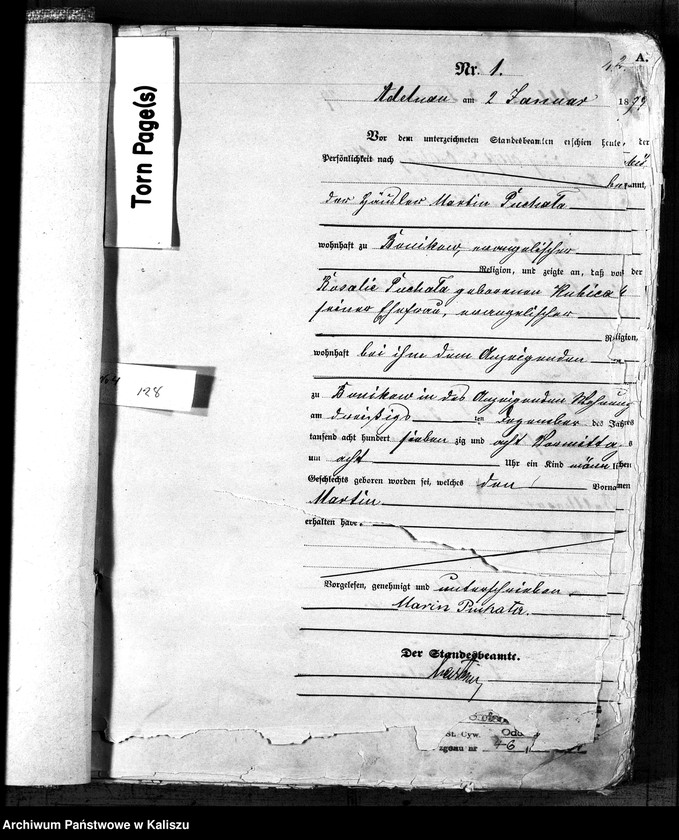 Torn Page(s)
128
A.
Nr. 1.
Adelnau am 2 Januar 1879
Vor dem unterzeichneten Standesbeamten erschien heute, der
Persönlichkeit nach
bekannt,
der Häusler Martin Puchała
wohnhaft zu Bonikow, evangelischer
Religion, und zeigte an, daß von der
Rosalie Puchała geborenen Kubica
seiner Ehefrau, evangelischer
Religion,
wohnhaft bei ihm dem Anzeigenden
zu Bonikow in des Anzeigenden Wohnung
am dreißigsten Dezember des Jahres
tausend acht hundert sieben zig und acht Vormittags
um acht Uhr ein Kind männlichen
Geschlechts geboren worden sei, welches den Vornamen
Martin
erhalten habe.
Vorgelesen, genehmigt und unterschrieben
Marin Puchała.
Der Standesbeamte.
St. Cyw.
nr 46
Archiwum Państwowe w Kaliszu